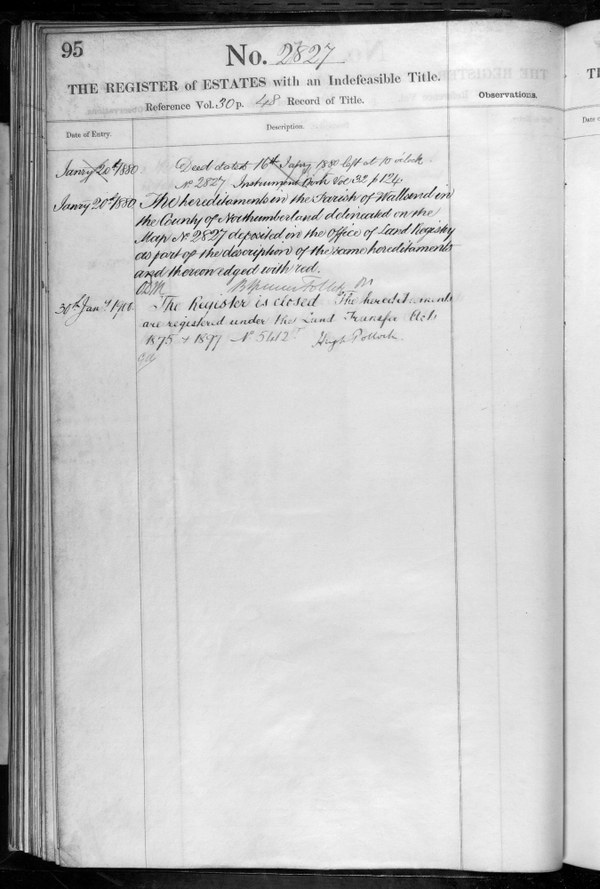 95
No. 2827
THE REGISTER of ESTATES with an Indefeasible Title.
Reference Vol. 30 p. 48 Record of Title.
Observations.
Date of Entry.
Description.
Janry 20th 1880
Deed dated 16th Janry 1880 left at 10 o'clock
No 2827 Instrument Book Vol 32 p 124
Janry 20th 1880
The hereditaments in the Parish of Wallsend in
the County of Northumberland delineated on the
Map No 2827 deposited in the office of Land Registry
as part of the description of the same hereditaments
and thereon edged with red.
30th Jany 1900
The Register is closed The hereditaments
are registered under the Land Transfer Acts
1875 & 1897 No 5412
Hugh Pollock